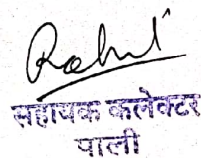 Rahul
सहायक कलेक्टर
पाली